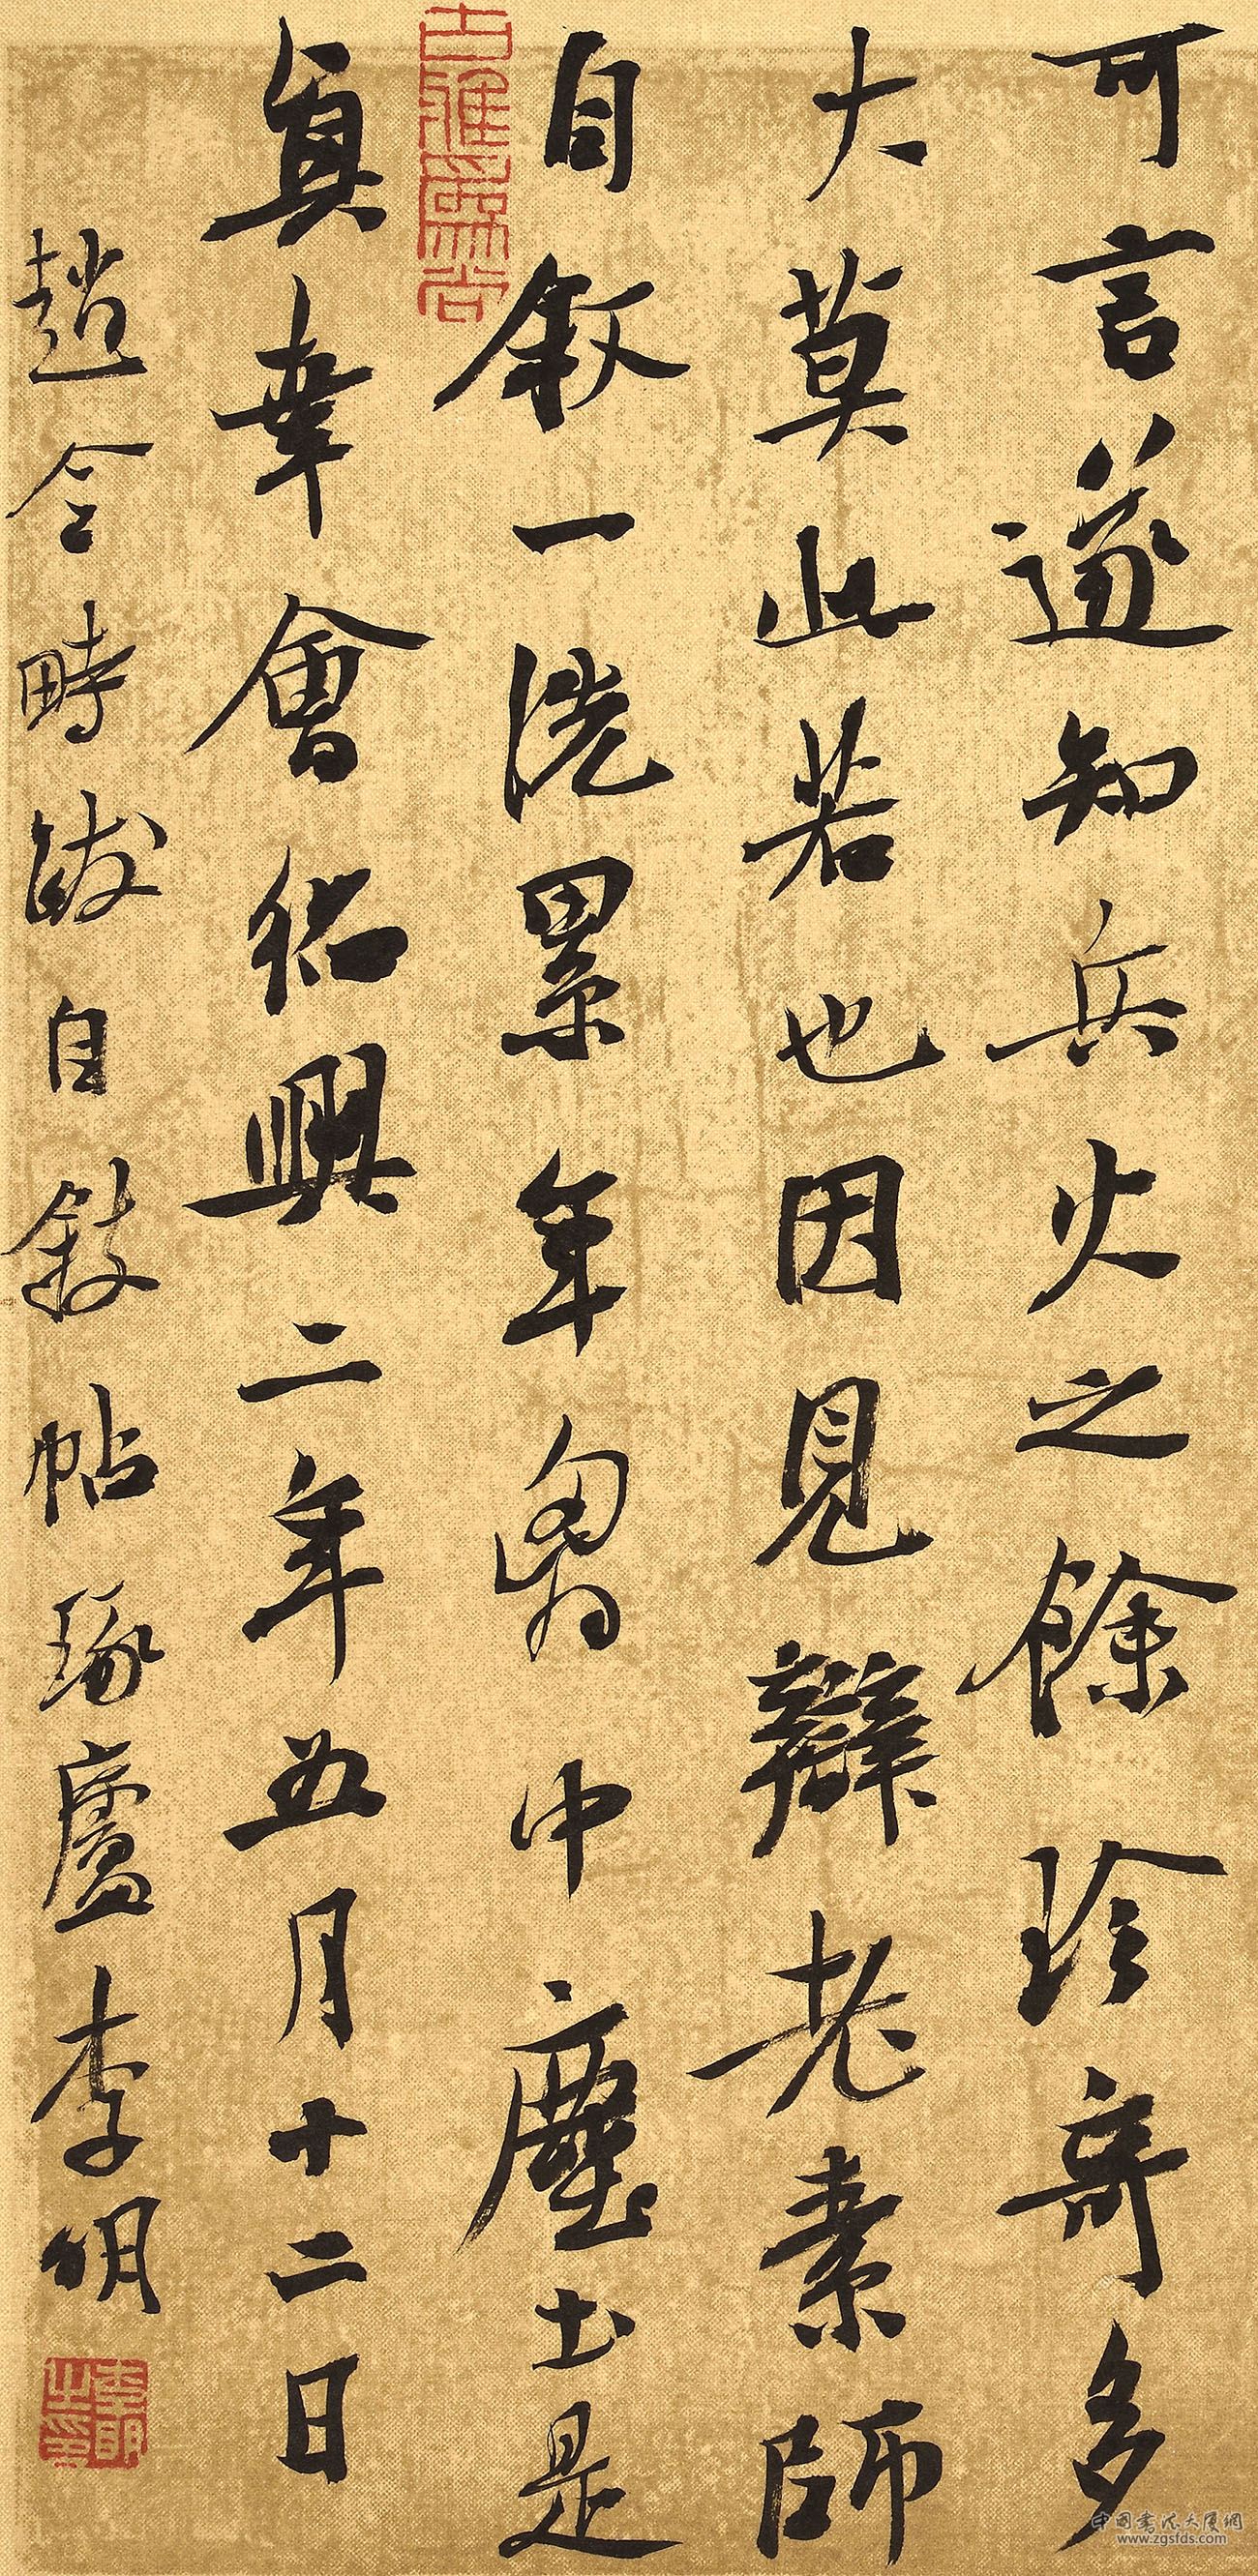 可言遂知兵火之餘珍奇多
大莫此若也因見辯老素師
自叙一洗累年胷中塵土是
真幸會紹興二年五月十二日
趙令畤跋自敘帖琢廬李明
中國書法大廈網
www.zgsfds.com